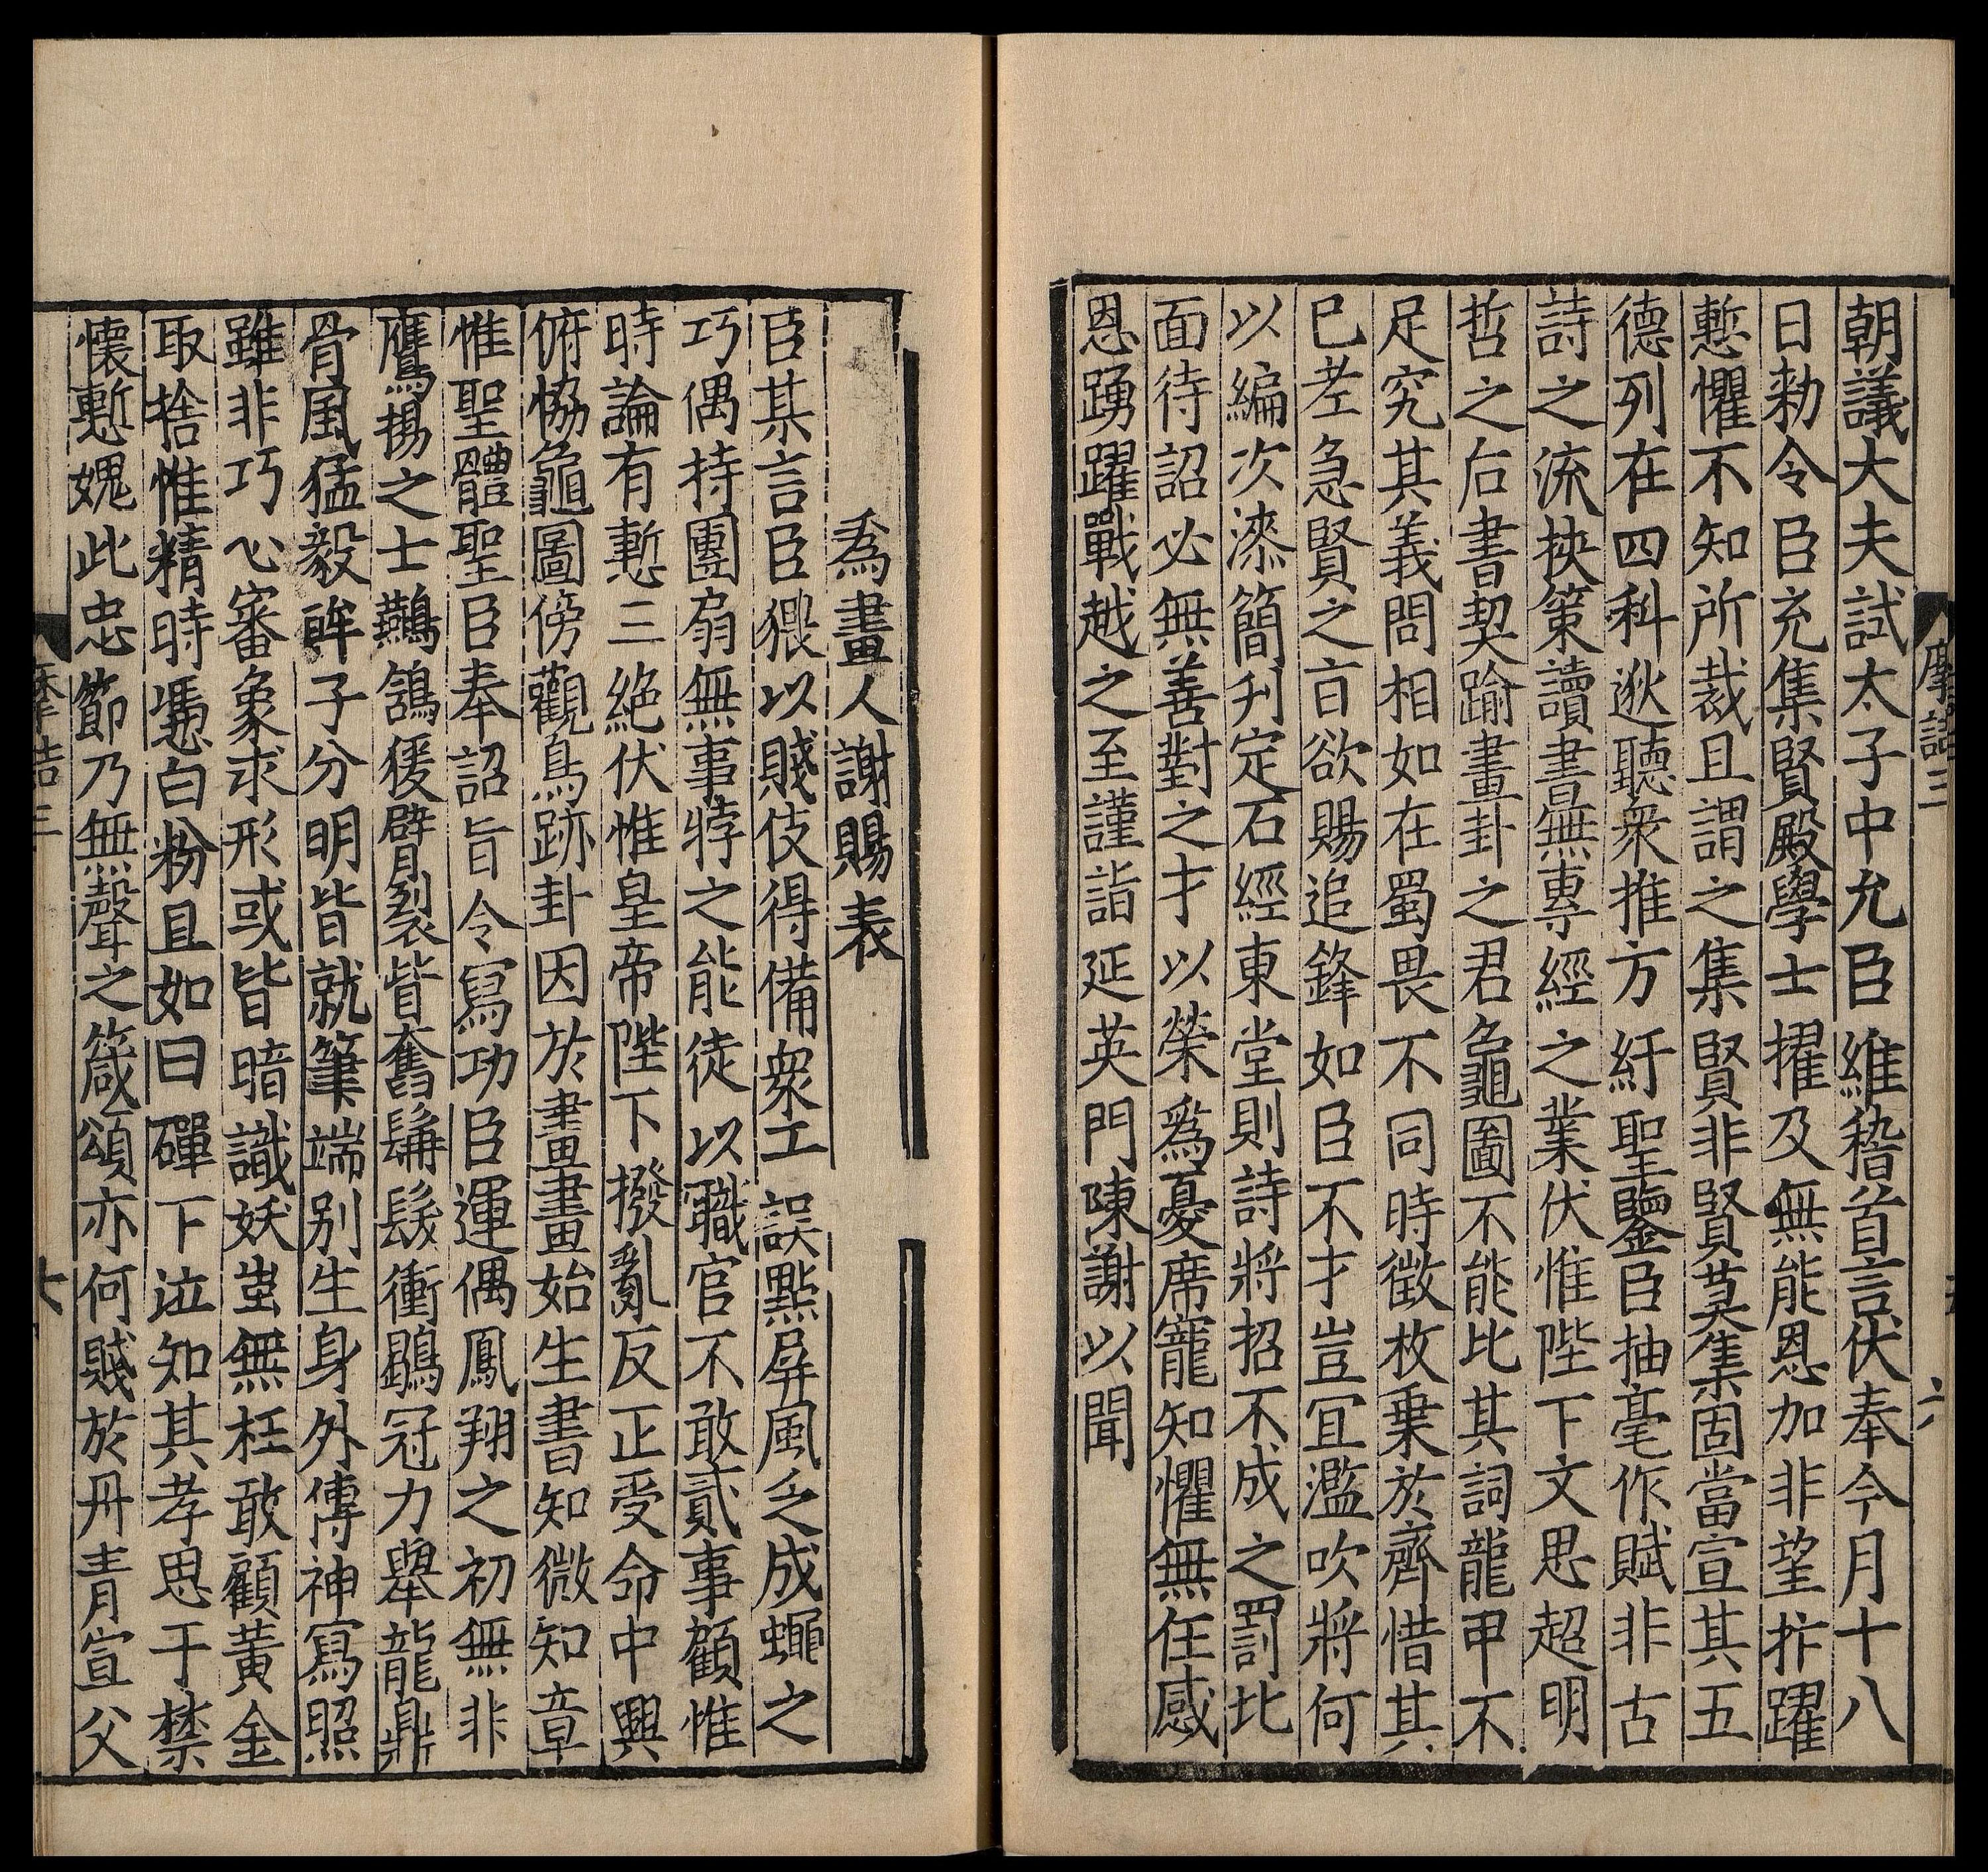 朝議大夫試太子中允臣維稽首言伏奉今月十八
日勑令臣充集賢殿學士擢及無能恩加非望抃躍
慙懼不知所裁且謂之集賢非賢莫集固當宣其五
德列在四科逖聽衆推方紆聖鑒臣抽毫作賦非古
詩之流挾策讀書無專經之業伏惟陛下文思超明
哲之后書契踰畫卦之君龜圖不能比其詞龍甲不
足究其義問相如在蜀畏不同時徵枚乗於齊惜其
巳老急賢之旨欲賜追鋒如臣不才豈冝濫吹將何
以編次漆簡刋定石經東堂則詩將招不成之罰北
面待詔必無善對之才以榮爲憂席寵知懼無任感
恩踴躍戰越之至謹詣延英門陳謝以聞
摩詰三
六
爲畫人謝賜表
臣某言臣猥以賤伎得備衆工誤點屏風乏成蠅之
巧偶持團扇無事牸之能徒以職官不敢貳事顧惟
時論有慙三絶伏惟皇帝陛下撥亂反正受命中興
俯恊龜圖傍觀鳥跡卦因於畫畫始生書知微知章
惟聖體聖臣奉詔旨令寫功臣運偶鳳翔之初無非
鷹揚之士鷰頷猨臂裂眥奮髯髮衝鶡冠力舉龍鼎
骨風猛毅眸子分明皆就筆端别生身外傳神寫照
雖非巧心審象求形或皆暗識妖蚩無枉敢顧黃金
取捨惟精時慿白粉且如日磾下泣知其孝思于禁
懷慙媿此忠節乃無聲之箴頌亦何賤於丹青宣父
摩詰三
七